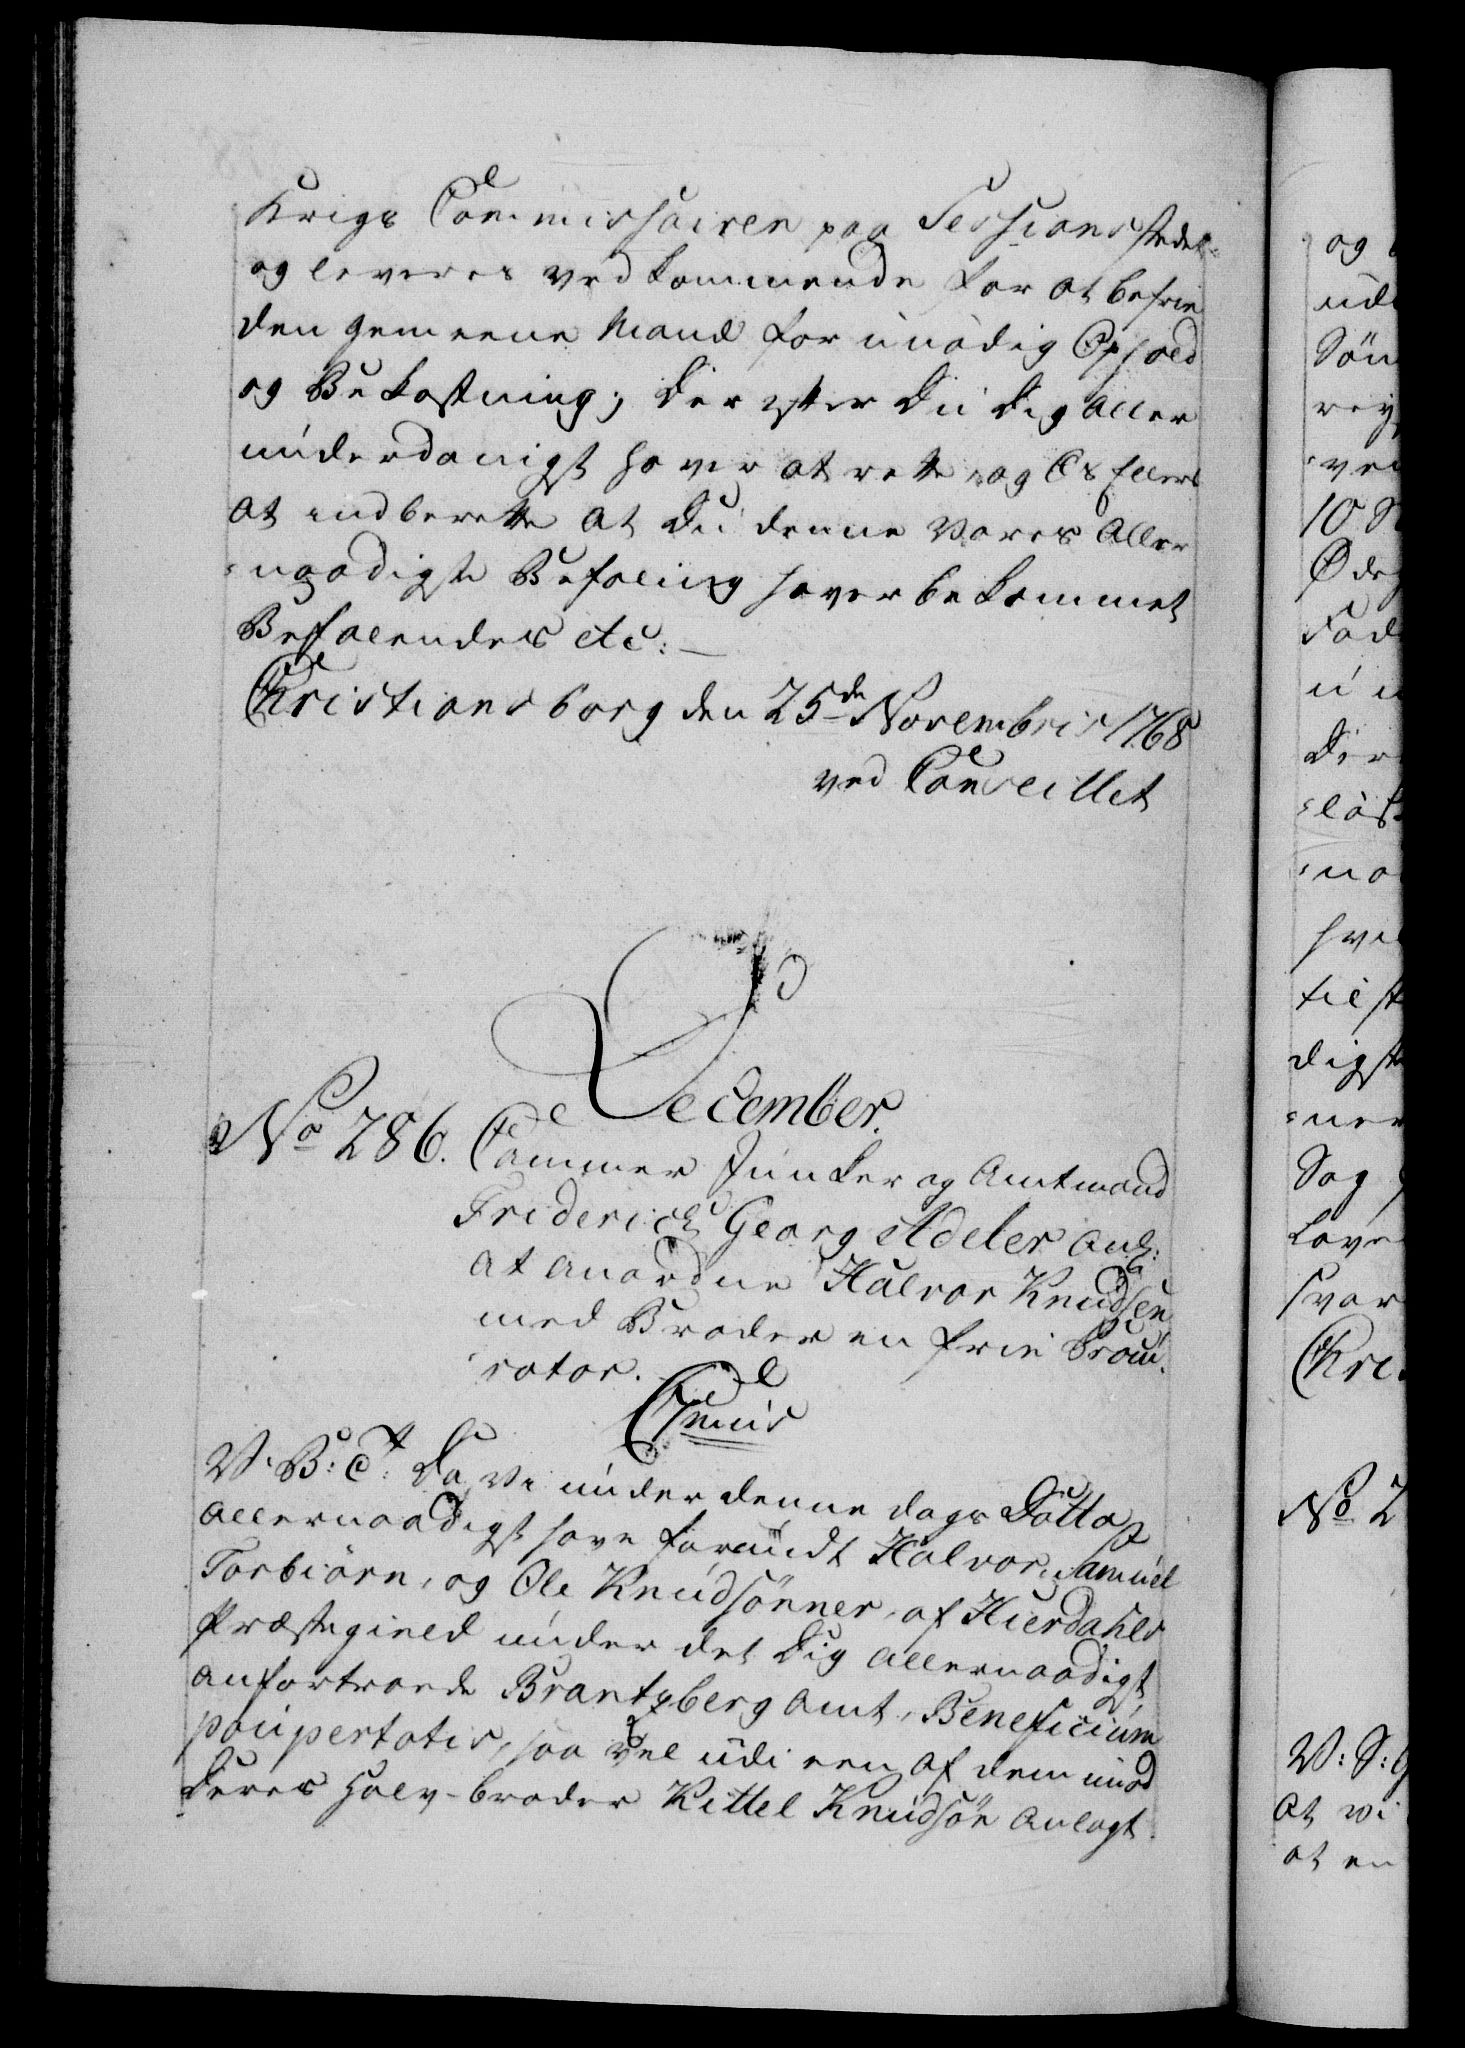 Krigs Commissairen paa Sessions stedet
og leveres vedkommende for at befrie
den gemeene Mand for unödig Ophold
og Bekostning; Der efter Du dig aller
underdanigst haver at rette, og Os Ellers
at indberette at Du denne Vores Aller
=naadigste Befaling haver bekommet
Befalendes etc:
Christiansborg den 25de Novembris 1768
ved Conseillet
December.
No 286. Cammer Junker og Amtmand
Friderich Georg Adeler anl:
at anordne Halvor Knudsen
med Brodre en frie Procu=
=rator.
Cnius
V. B: G: Da Vi under denne Dags Datto
allernaadigst have forundt Halvor, Samuel
Torbiörn, og Ole Knudsönner, af Hierdahls
Præstegield under det Dig allernaadigst
anfortroede Brantzberg Amt, Beneficium
paupertatis, saa vel udi een af dem imod
deres Halv-broder Kittel Knudsön anlagt